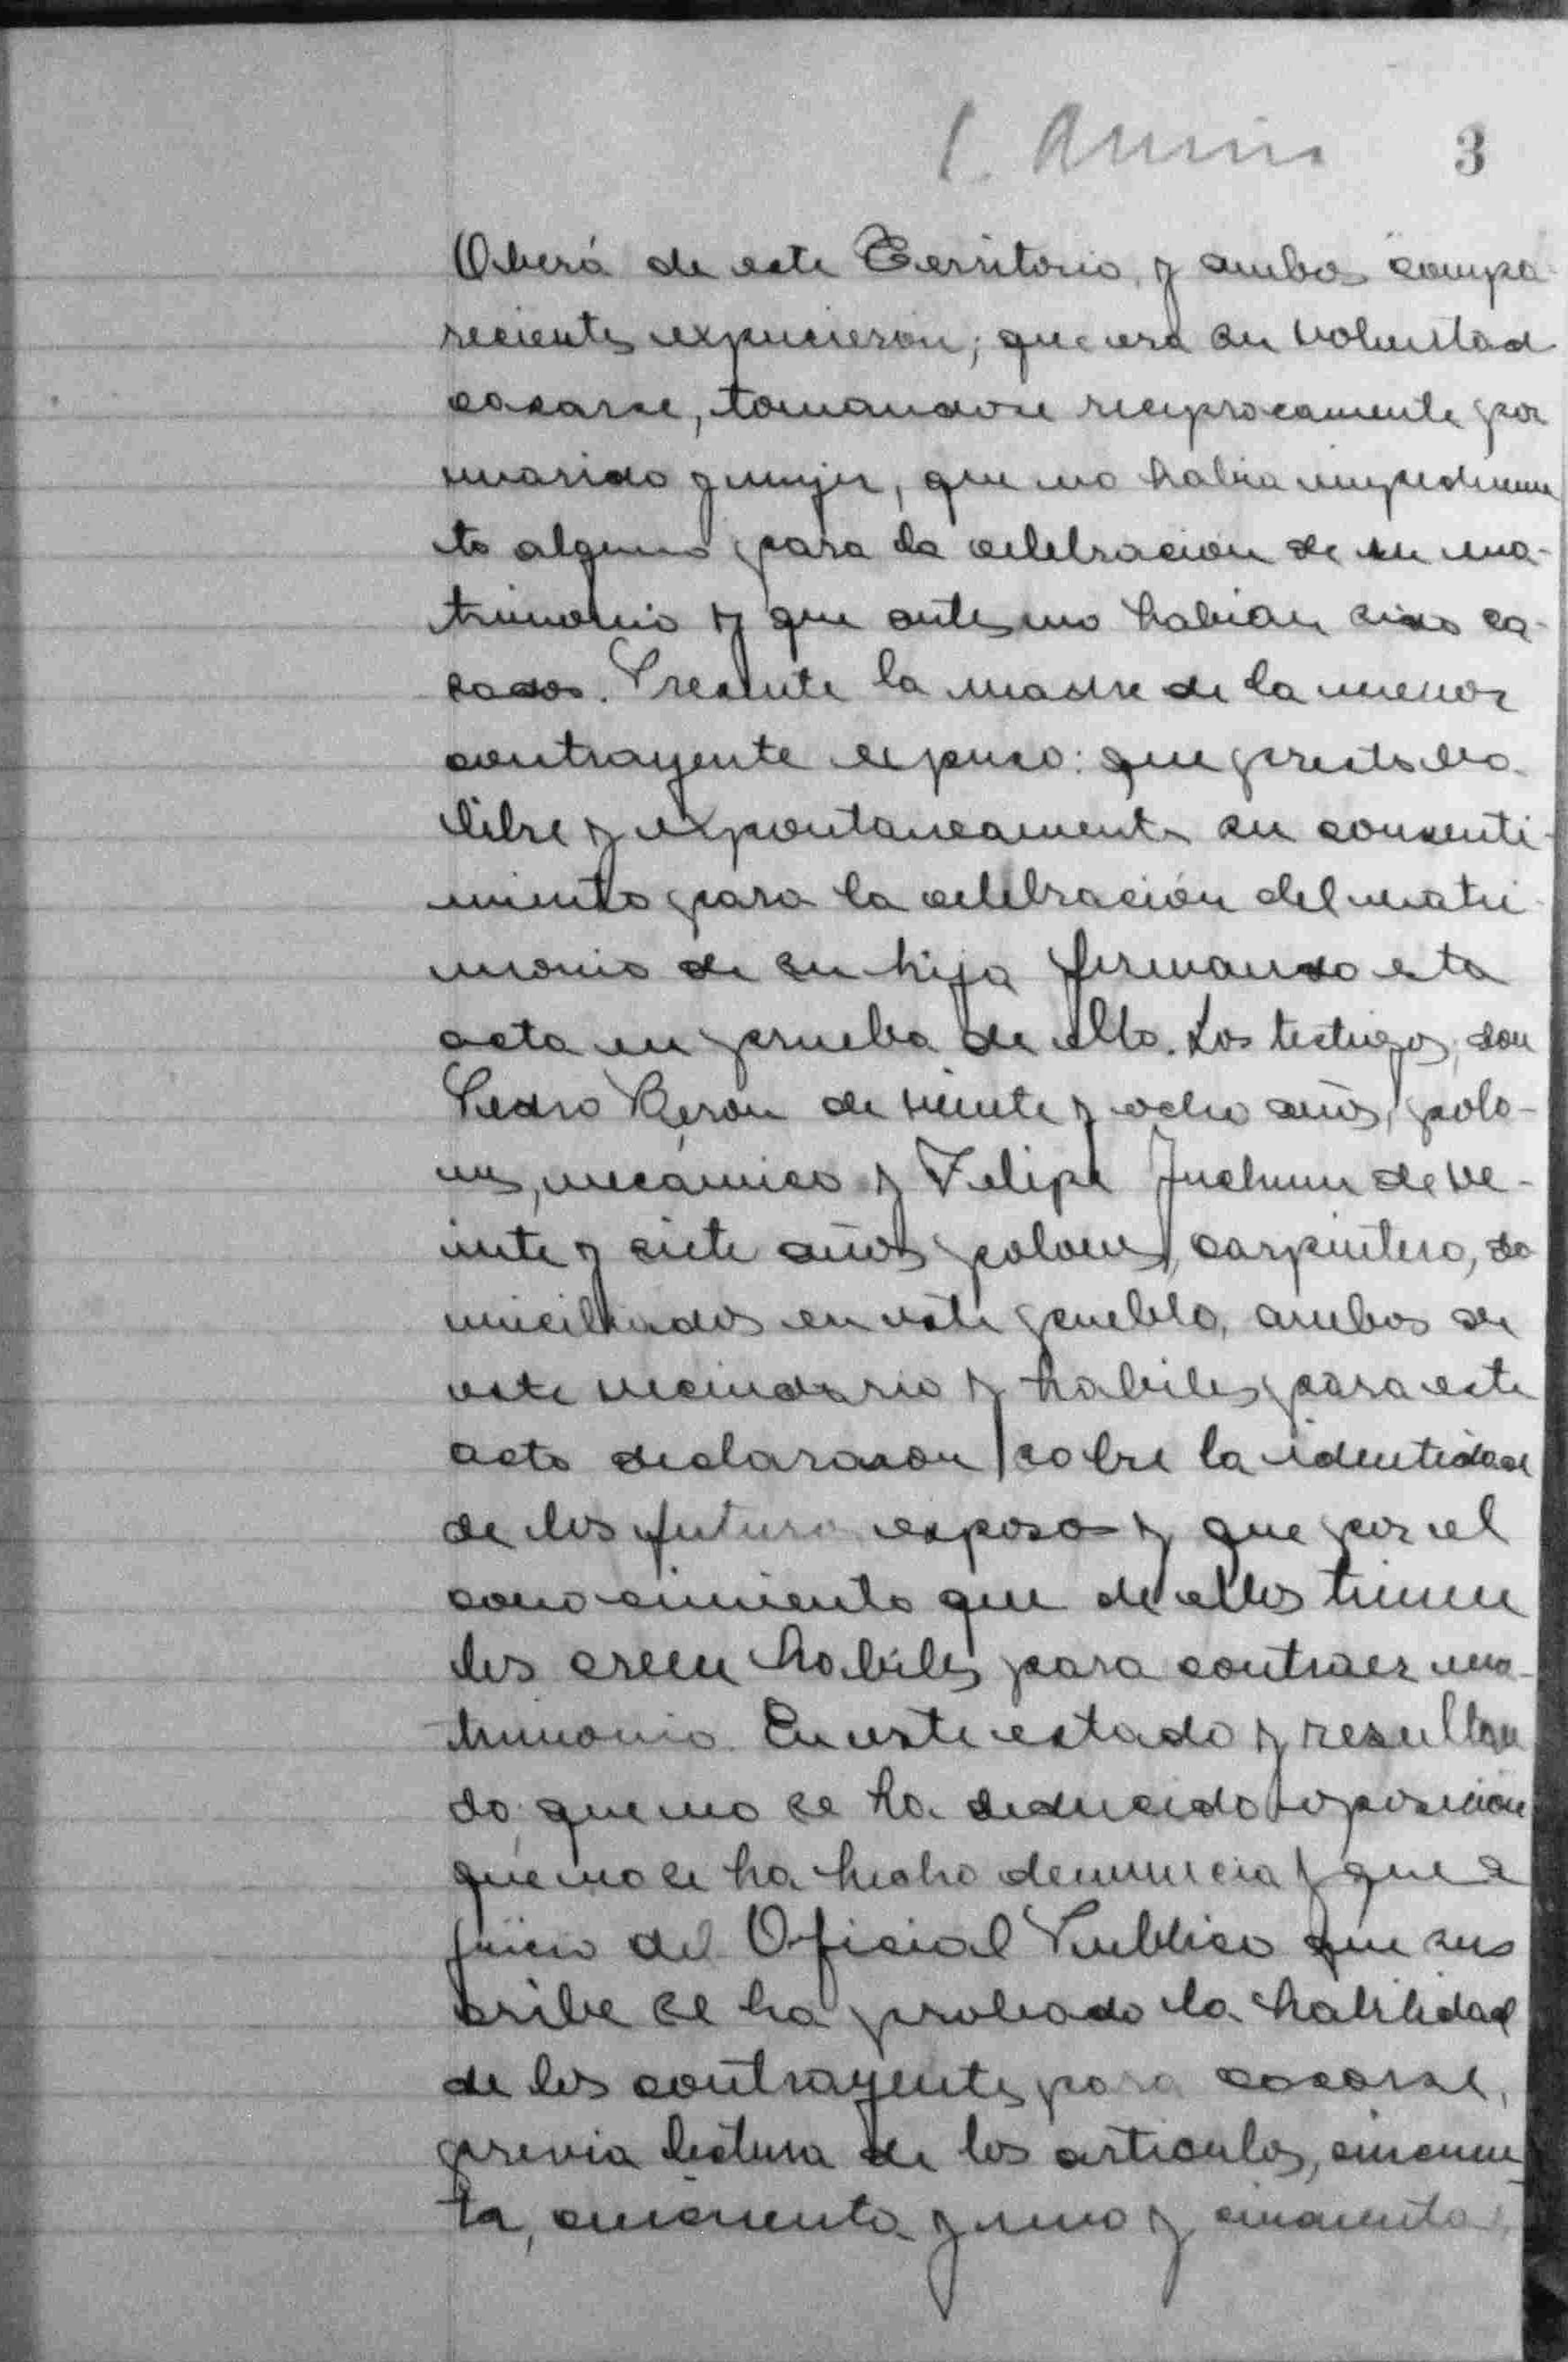 3
Oberá de este Territorio, y ambos compa-
recientes expucieron; que era su voluntad
casarse, tomandose reciprocamente por
marido y mujer, que no habia impedimen
to alguno para la celebracion de su ma-
trimonio y que antes no habian sido ca-
sados. Presente la madre de la menor
contrayente expuso: que prestaba
libre y expontaneamente su consenti-
miento para la celebración del matri-
monio de su hija firmando esta
acta en prueba de ello. Los testigos, don
Pedro de veinte y ocho años, polo-
nes, mecánico y Felipe de ve-
inte y siete años polones, carpintero, do
miciliados en este pueblo, ambos de
este vecindario y habiles para este
acto declararon sobre la identidad
de los futuros esposos y que por el
conocimiento que de ellos tienen
los creen habiles para contraer ma-
trimonio. En este estado y resultan
do que no se ha deducido oposición
que no se ha hecho denuncia y que a
juicio del Oficial Publico que sus
cribe se ha probado la habilidad
de los contrayentes para casarse,
previa lectura de los articulos, cincuen-
ta, cincuenta y uno y cincuenta